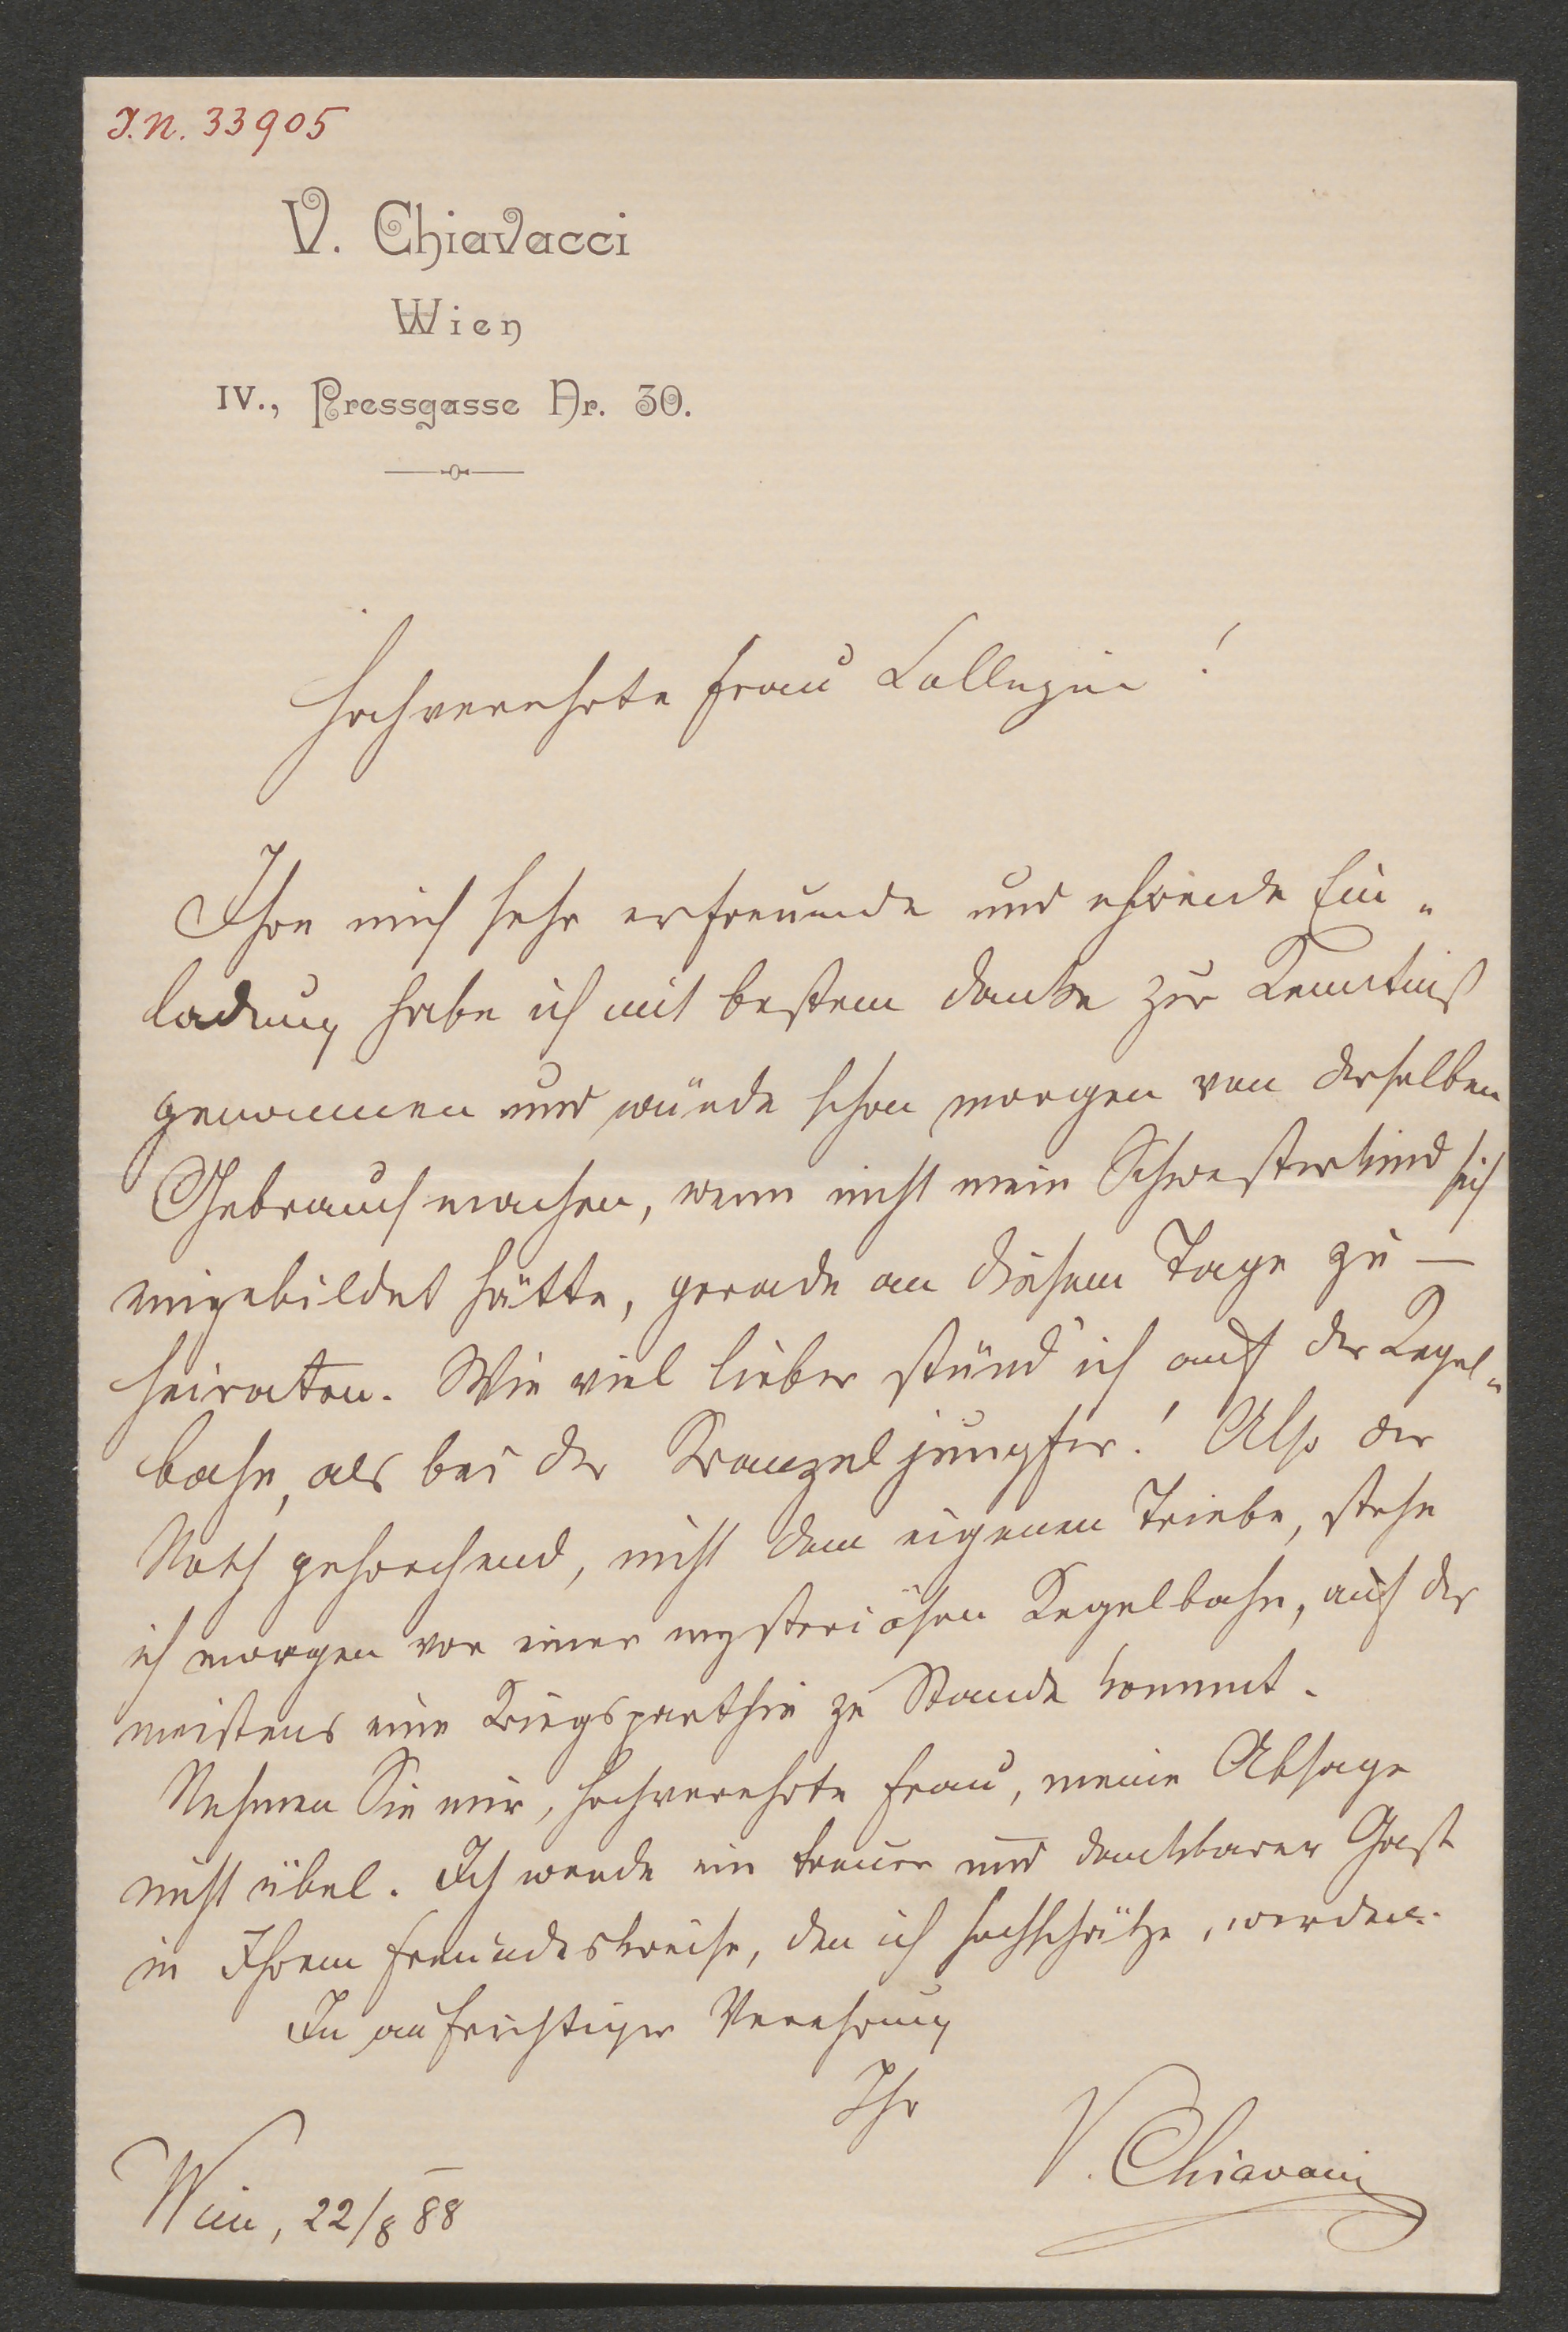 I.N. 33905
V. Chiavacci
Wien
IV., Pressgasse Nr. 30.
Hochverehrte Frau Collegin!
Ihre mich sehr erfreuende und ehrende Ein-
ladung habe ich mit bestem Danke zur Kenntniß
genommen und würde schon morgen von derselben
Gebrauch machen, wenn nicht mein Schwesterkind sich
eingebildet hätte, gerade an diesem Tage zu –
heiraten. Wie viel lieber stünd' ich auf der Kegel-
bahn, als bei der Kranzeljungfer! Also der
Noth gehorchend, nicht dem eigenen Triebe, stehe
ich morgen vor einer mysteriösen Kegelbahn, auf der
meistens eine Kriegsparthie zu Stande kommt.
Nehmen Sie mir, hochverehrte Frau, meine Absage
nicht übel. Ich werde ein treuer und dankbarer Gast
in Ihrem Freundeskreise, den ich hochschätze, werden.
In aufrichtiger Verehrung
Ihr
V. Chiavacci
Wien, 22/8 88